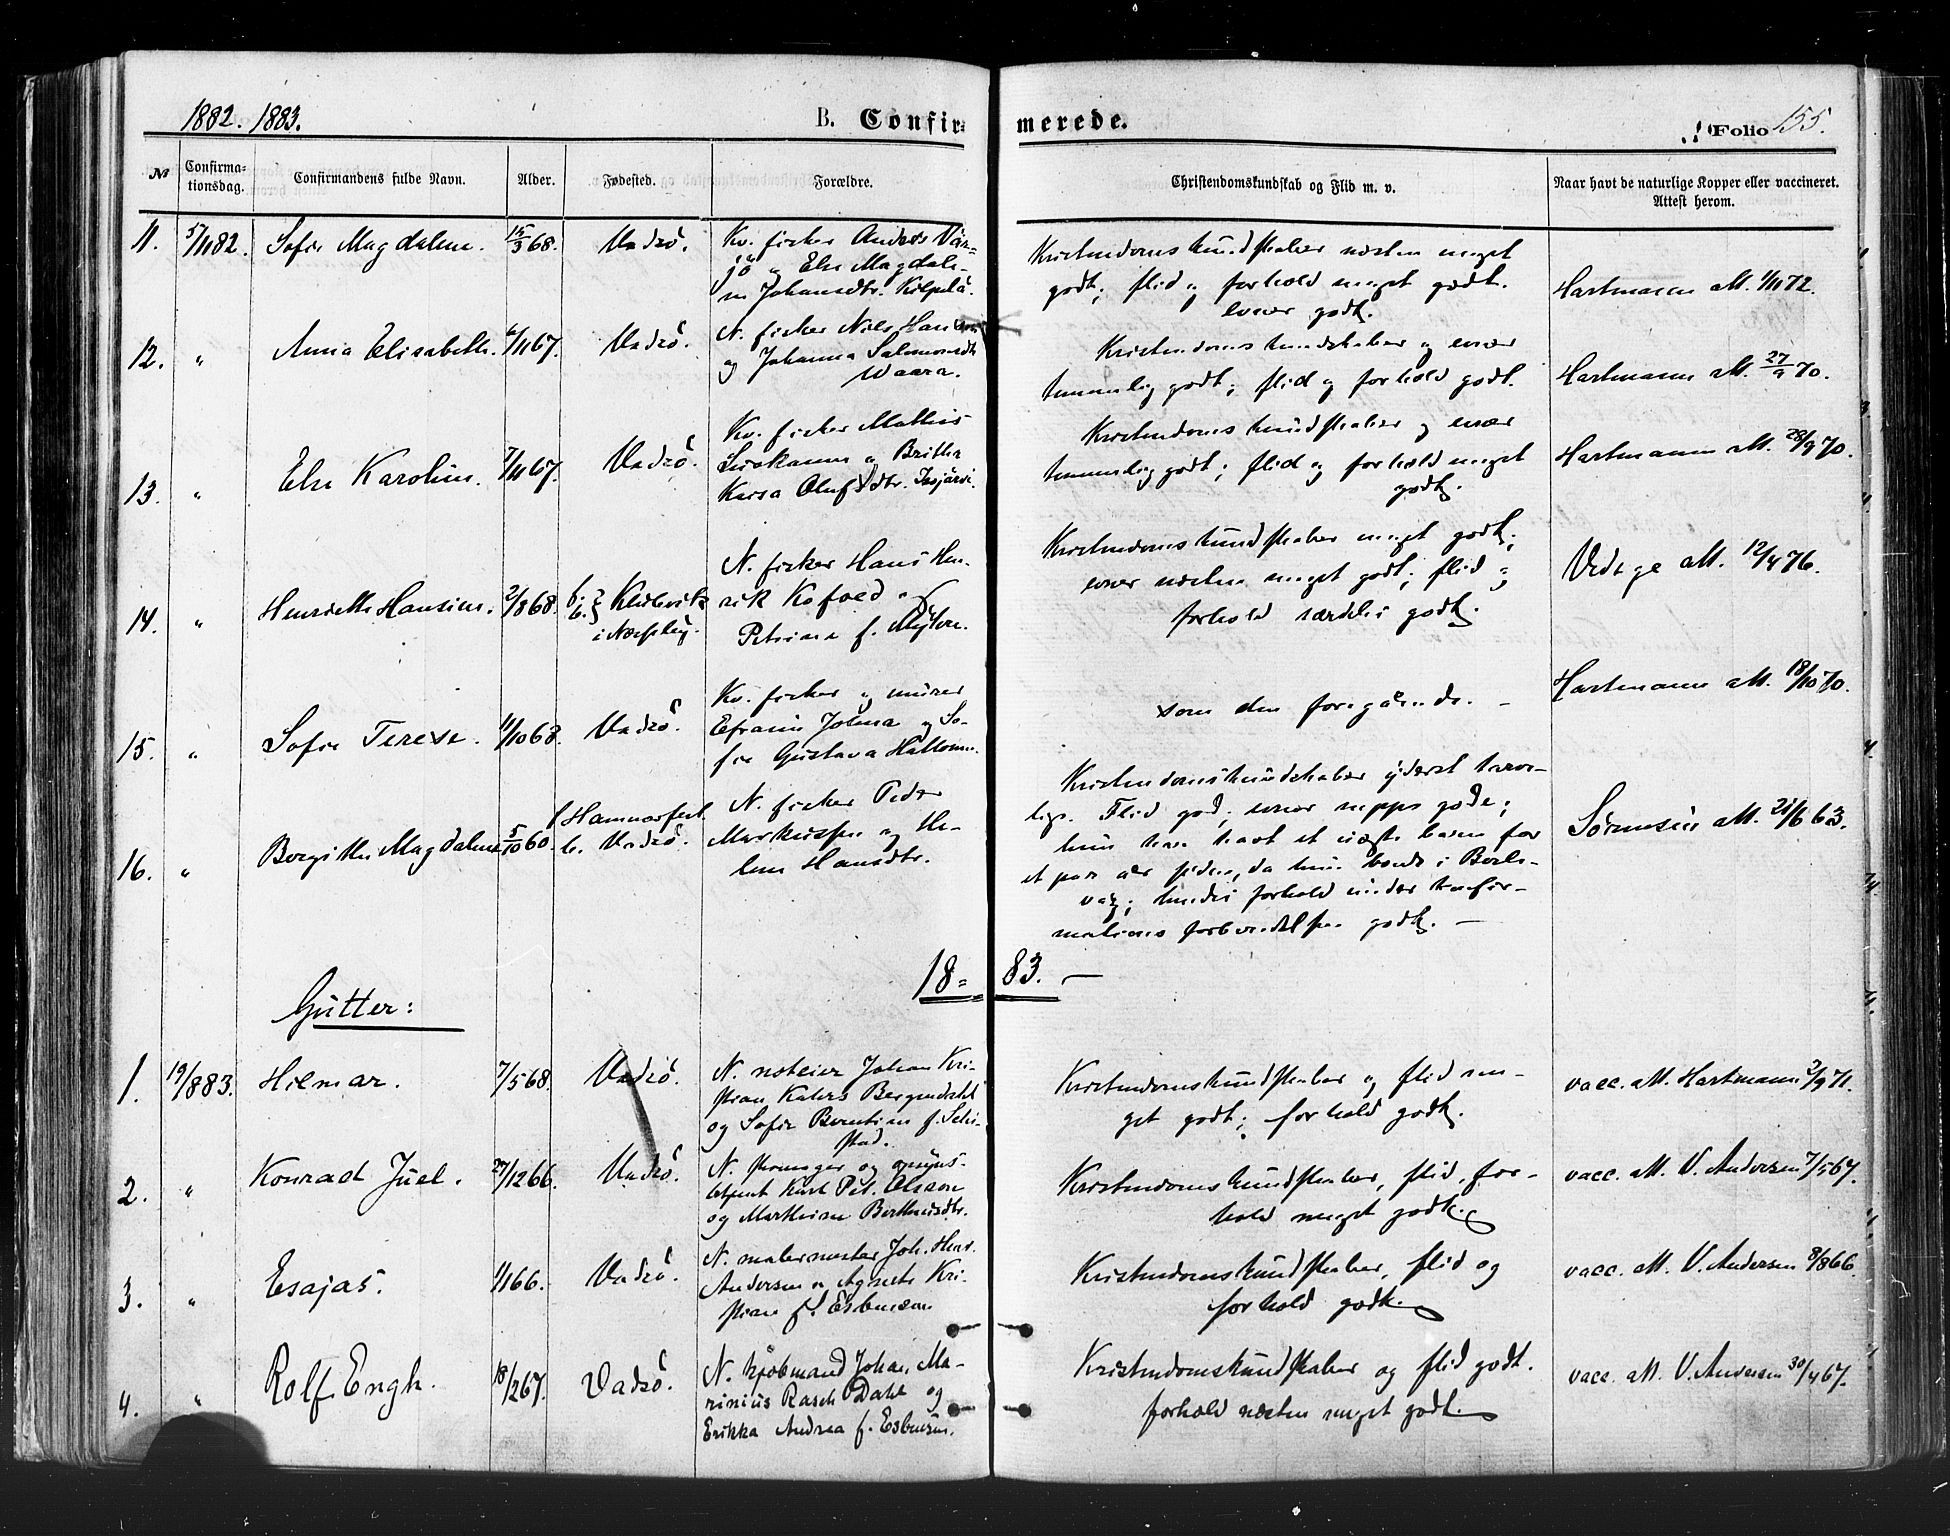 1882. 1883.
B. Confir-
merede.
Folio 155.
№
Confirma-
tionsdag.
Confirmandens fulde Navn.
Alder.
Fødested.
Forældre.
Christendomskundskab og Flid m. v.
Naar havt de naturlige Kopper eller vaccineret.
Attest herom.
11. 5/11 82. Sofie Magdalene. 15/3 68. Vadsö.
Kv. fisker Anders
jö og Else Magdale-
ne Johansdtr. Kilpelä.
Kristendomskundskaber næsten meget
godt; flid og forhold meget godt.
evner godt.
Hartmann att. 1/11 72.
12. " Anna Elisabeth. 6/11 67. Vadsö.
N. fisker Nils Hansen
og Johanna Salomonsdtr
Waara.
Kristendomskundskaber og evner
temmelig godt; flid og forhold godt.
Hartmann att. 27/9 70.
13. " Else Karoline. 7/11 67. Vadsö.
Kv. fisker Mathis
og Britha
Kaisa Olufsdtr.
Kristendomskundskaber og evner
temmelig godt; flid og forhold meget
godt.
Hartmann att. 28/9 70.
14. " Henriette Hansine. 2/8 68.
f. Klubvik
b. i Næsseby.
N. fisker Hans Hen-
rik Kofoed og
Petrine f.
Kristendomskundskaber meget godt;
evner næsten meget godt; flid og
forhold særdeles godt.
att. 12/4 76.
15. " Sofie Terese. 11/10 68. Vadsö.
Kv. fisker og murer
Efraim Johna og So-
fie Gustava
som den foregående. -
Hartmann att. 18/10 70.
16. " Borgitte Magdalene 5/10 60.
f. Hammerfest
b. Vadsö.
N. fisker Peder
Markussen og He-
lene Hansdtr.
Kristendomskundskaber yderst tarve-
lige. Flid god; evner neppe gode;
hun har havt et uægte barn for
et par år siden, da hun boede i Berle-
våg; hendes forhold under konfir-
mations forberedelsen godt. -
Sörensen att. 21/6 63.
18= 83. -
Gutter:
1. 19/8 83. Hilmar. 7/5 68. Vadsö.
N. Johan Kri-
stian Bergendahl
og Sofie Berntine f. Schi-
stad.
Kristendomskundskaber og flid me-
get godt; forhold godt.
vacc. att. Hartmann 2/9 71.
2. " Konrad Juel. 27/12 66. Vadsö.
N. og opsyns-
betjent Karl Pet. Olsson
og Marthine Berthusdtr.
Kristendomskundskaber, flid, for-
hold meget godt.
vacc. att. V. Andersen 7/5 67.
3. " Esajas. 1/1 66. Vadsö.
N. malermester Joh. Henr.
Andersen og Agnete Kri-
stine f. Esbensen
Kristendomskundskaber, flid og
forhold godt.
vacc. att. V. Andersen 8/8 66.
4. " Rolf Engh. 18/2 67. Vadsö.
N. kjöbmand Johan Ma-
rinius Rasch Dahl og
Erikka Andrea f. Esbensen.
Kristendomskundskaber og flid godt.
forhold næsten meget godt.
vacc. att. V. Andersen 30/4 67.